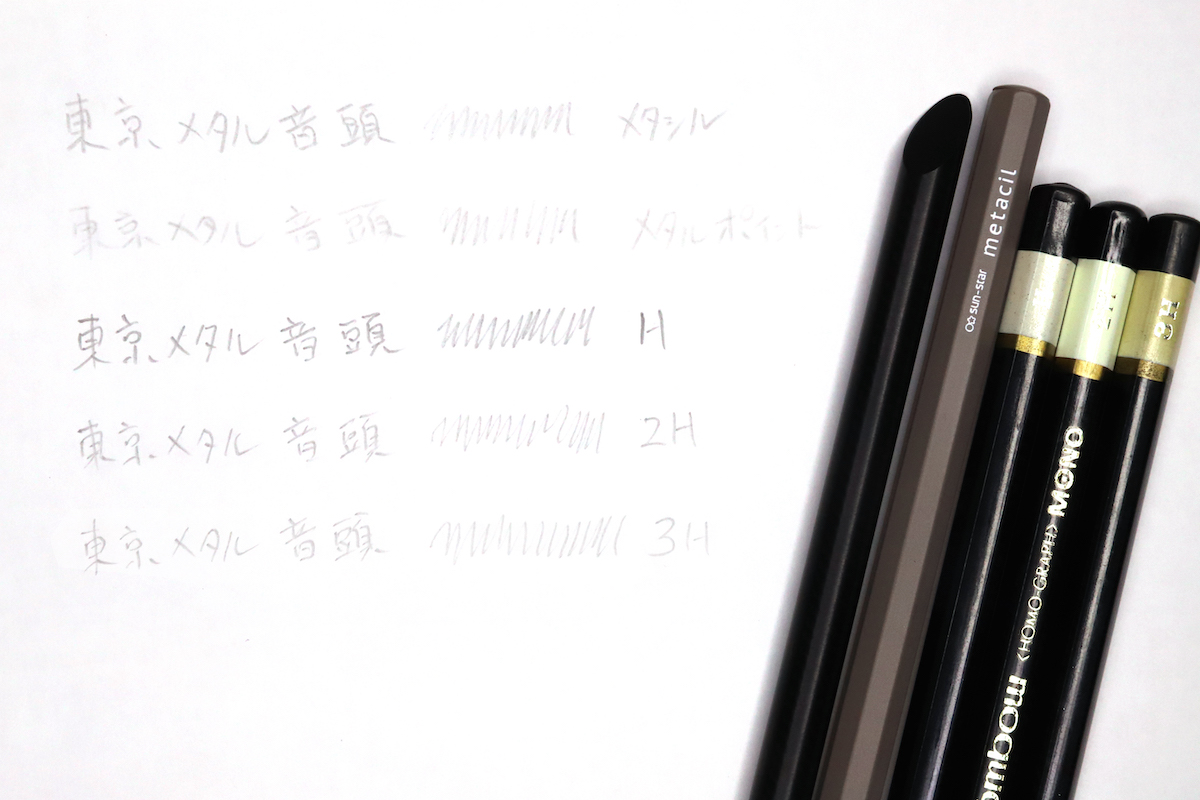 東京メタル音頭 メタシル
東京メタル音頭 メタルポイント
東京メタル音頭 H
東京メタル音頭 2H
東京メタル音頭 3H
sun-star metacil
mbow 〈HOMO-GRAPH〉 MONO